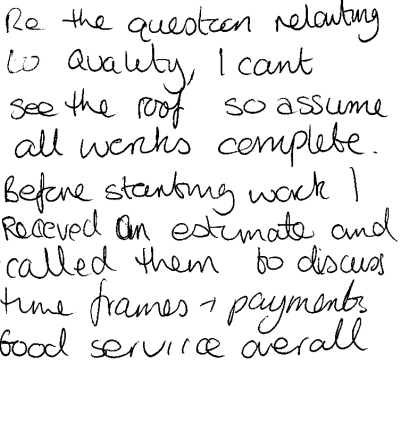 Re the question relating
to Quality, I cant
see the roof so assume
all works complete.
Before starting work I
Receved an estimate and
called them to discuss
time frames + payments
Good service overall